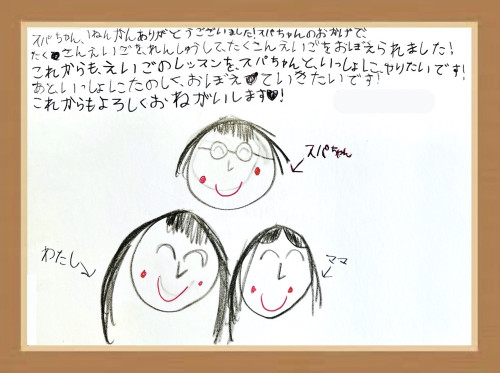 スパちゃん、1ねんかんありがとうございました!スパちゃんのおかげで
たくさんえいごを、れんしゅうして、たくさんえいごをおぼえられました!
これからも、えいごのレッスンを、スパちゃんと、いっしょに、やりたいです!
あと、いっしょにたのしく、おぼえていきたいです!
これからもよろしくおねがいします!
スパちゃん
わたし
ママ